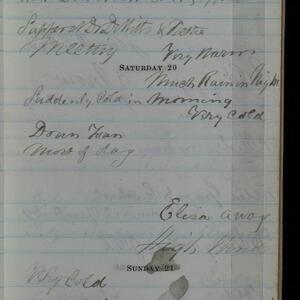 Supper at Dr De Witts &
Meeting
Very Warm
SATURDAY 20
Much Rain in Night
Suddenly Cold in Morning
Very Cold
Down Town
Most of day
Eliza away
High Wind
SUNDAY 21
Very Cold